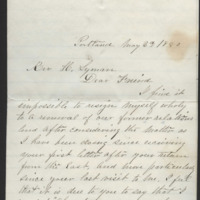 Portland Aug 23 / 80
Rev H. Lyman
Dear Friend
I find it
impossible to resign myself wholly
to a removal of our former relations
and after considering the matter as
I have been doing since receiving
your first letter after your return
from the East, and more particularly
since your last visit to me, I feel
that it is due to you to say that I